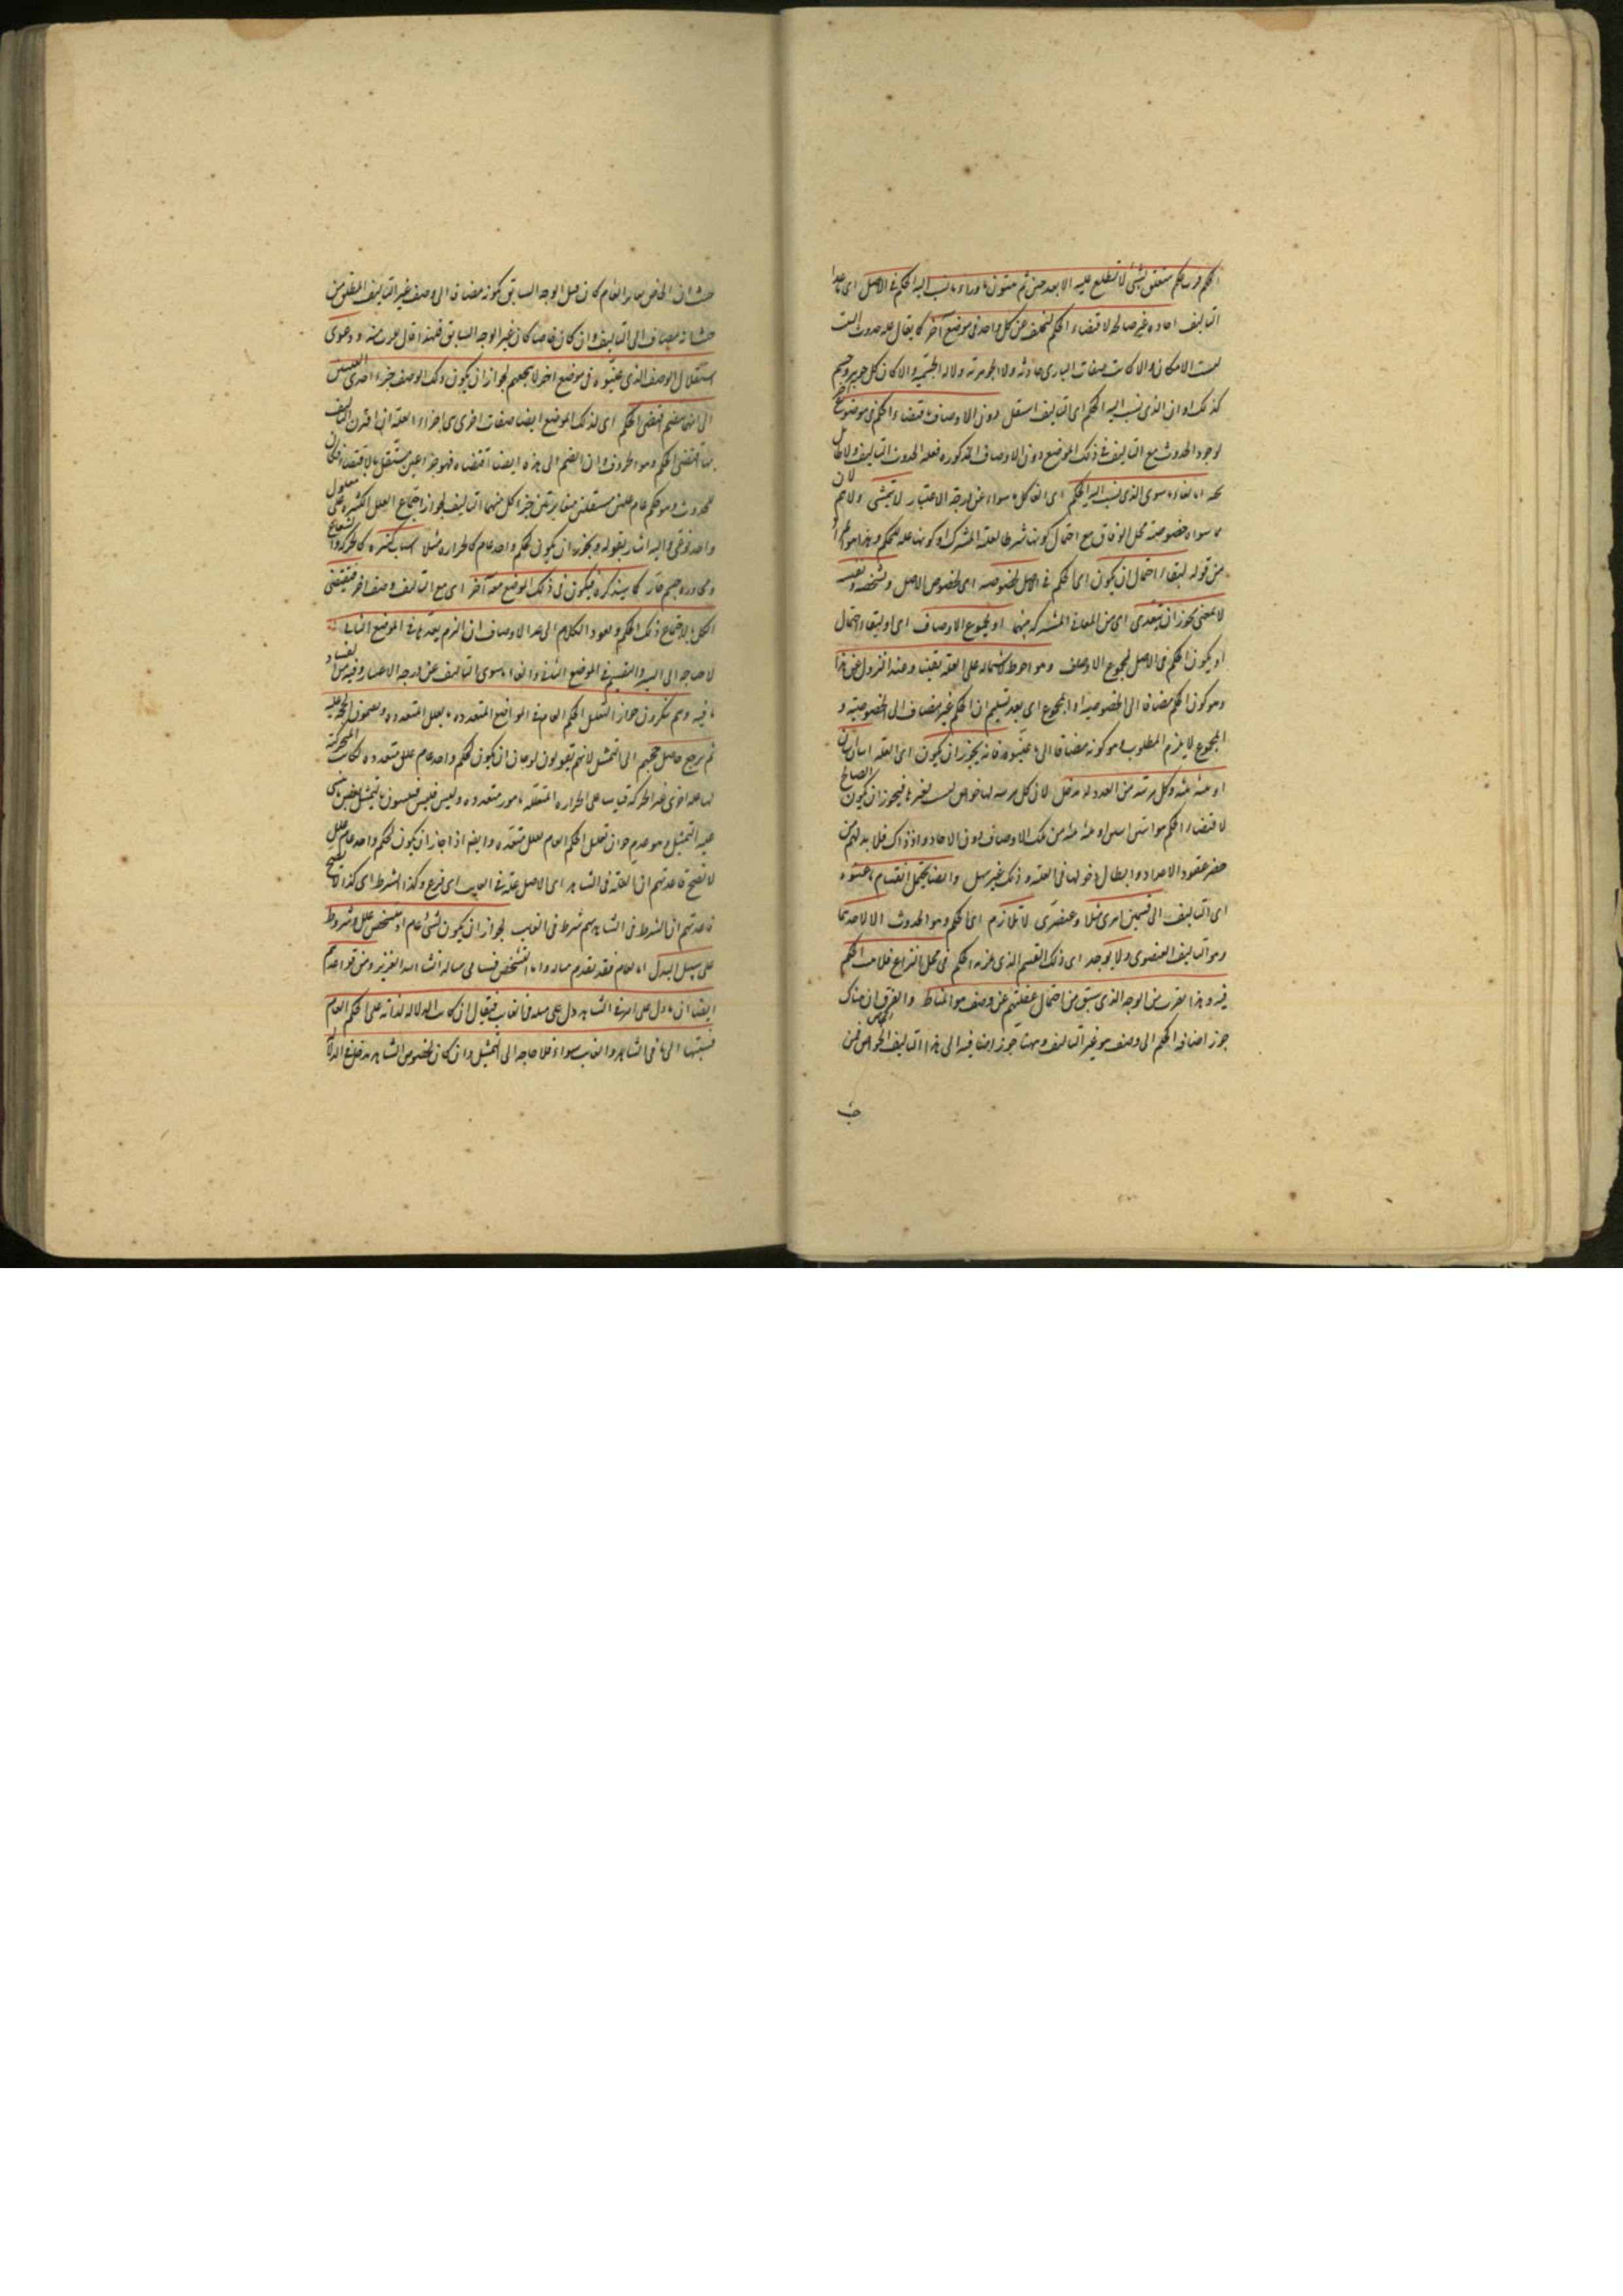 الحكم فرب حكم متعلق بشئ لا نطلع عليه الا بعد حين ثم يثبتون ما وراء ما نسب اليه الحكم في الاصل اى ما عدا
التأليف احاده غير صالحه لاقتضاء الحكم لتخلفه عن كل واحد في موضع آخر كما يقال علة حدوث البيت
ليست الامكان والا كانت صفات البارى حادثه ولا الجوهريه ولا الجسميه والا كان كل جوهر وجسم
كذلك او ان الذى نسب اليه الحكم اى التأليف استقل دون الاوصاف باقتضاء الحكم في موضع آخر
لوجود الحدوث مع التأليف في ذلك الموضع دون الاوصاف المذكوره فعلة الحدوث التأليف ولا طائل
تحته الغاء ما سوى الذى نسب اليه الحكم اى الغا كل ما سواه عن درجة الاعتبار لا يتمشى لان
ما سواه خصوصية محل الوفاق مع احتمال كونها شرطا لعلته المشترك او كونها علة للحكم وهذا هو المراد
من قوله لبقاء احتمال ان يكون اى الحكم في الاصل لخصوصيه اى لخصوص الاصل وتشخصه وتعينه
لا لمعنى يجوز ان يتعدى اى من المعانى المشتركه فيها او لمجموع الاوصاف اى او لبقاء احتمال
ان يكون الحكم في الاصل لمجموع الاوصاف وهو احوط لاشتماله على العلة يقينا وعند النزول عن هذا
وهو كون الحكم مضافا الى الخصوصيه او المجموع اى بعد تسليم ان الحكم غير مضاف الى الخصوصيه و
المجموع لا يلزم المطلوب وهو كونه مضافا الى ما عينوه فانه يجوز ان يكون اى العله اثنان اثنان
او ثلثه ثلثه وكل مرتبه من العدد له مدخل لان كل مرتبه لها خواص ليست لغيرها فيجوز ان يكون الصالح
لاقتضاء الحكم هو اثنين اثنين او ثلثه ثلثه من تلك الاوصاف دون الاحاد واذ ذاك فلا بد لهم من
حصر عقود الاعداد وابطال دخولها في العلة وذلك غير سهل وايضا يحتمل انقسام ما عينوه
اى التأليف الى قسمين مثلا وعنصرى لا يلازم اى الحكم وهو الحدوث الا لاحدهما
وهو التأليف العنصرى ولا يوجد اى ذلك القسم الذى يلزمه الحكم في محل النزاع فلا يثبت الحكم
فيه وهذا يقرب من الوجه الذى سبق من احتمال غفلتهم عن وصف هو المناط والفرق ان هناك
جوز اضافة الحكم الى وصف هو غير التأليف وههنا جوز اضافته الى هذا التأليف الخاص فمن
حيث
حيث ان الخاص مغاير العام كان مثل الوجه السابق لكونه مضافا الى وصف غير التأليف المطلق ومن
حيث انه مضاف الى التأليف وان كان خاصا كان غير الوجه السابق فلهذا قال يقرب منه ودعوى
استقلال الوصف الذى عينوه في موضع آخر لا ينفعهم لجواز ان يكون ذلك الوصف جزء احدى العلتين
اى انها منضم اقتضى الحكم اى لذلك الموضع ايضا صفات اخرى هى اجزاء العله اذا اقترن التأليف
بها اقتضى الحكم وهو الحدوث وان انضم الى هذه ايضا اقتضاه فهو جزء علتين مستقل بالاقتضاء فكان
للحدوث وهو حكم عام علتين مستقلتين متغايرتين جزء كل منهما التأليف لجواز اجتماع العلل الكثيره على معلول
واحد نوعى واليه اشار بقوله ويجوز ان يكون لحكم واحد عام كالحراره مثلا اسباب كثيره كالحركه والشعاع
ومجاورة جسم حار كما سنذكره فيكون في ذلك الموضع معه آخر اى مع التأليف وصف آخر فيقتضى
الكل بالاجتماع ذلك الحكم ويعود الكلام الى عد الاوصاف ان التزم بعدها في الموضع الثانى
لا حاجه الى السبر والتقسيم في الموضع الثانى والغاء ما سوى التأليف عن درجة الاعتبار وفيه من الفساد
ما فيه وهم ينكرون جواز تعليل الحكم العام في المواضع المتعدده بالعلل المتعدده ويعملون الحجه عليه
ثم يرجع حاصل حجتهم الى التمثيل لانهم يقولون لو جاز ان يكون لحكم واحد عام علل متعدده لكانت المتحركيه
لها علة اخرى غير الحركه قياسا على الحراره المعلله بامور متعدده وليس فليس فليسوا بالتمثيل
عليه التمثيل وهو عدم جواز تعليل الحكم العام بعلل متعدده وايضا اذا جاز ان يكون لحكم واحد عام علل
لا تصح قاعدتهم ان العلة في الشاهد اى الاصل علة في الغايب اى فرع وكذا الشرط اى كذا لا تصح
قاعدتهم ان الشرط في الشاهد شرط في الغايب لجواز ان يكون لشئ عام او متشخص علل وشروط
على سبيل البدل اما العام فقد تقدم مثاله واما المتشخص فسيأتى مثاله انشا الله العزيز ومن قواعدهم
ايضا ان ما دل على امر في الشاهد دل على مثله في الغايب فيقال ان كانت الدلاله لذاته على الحكم العام
فنسبتها الى ما في الشاهد والغايب سواء فلا حاجه الى التمثيل وان كان لخصوص الشاهد مدخل في الدلالة